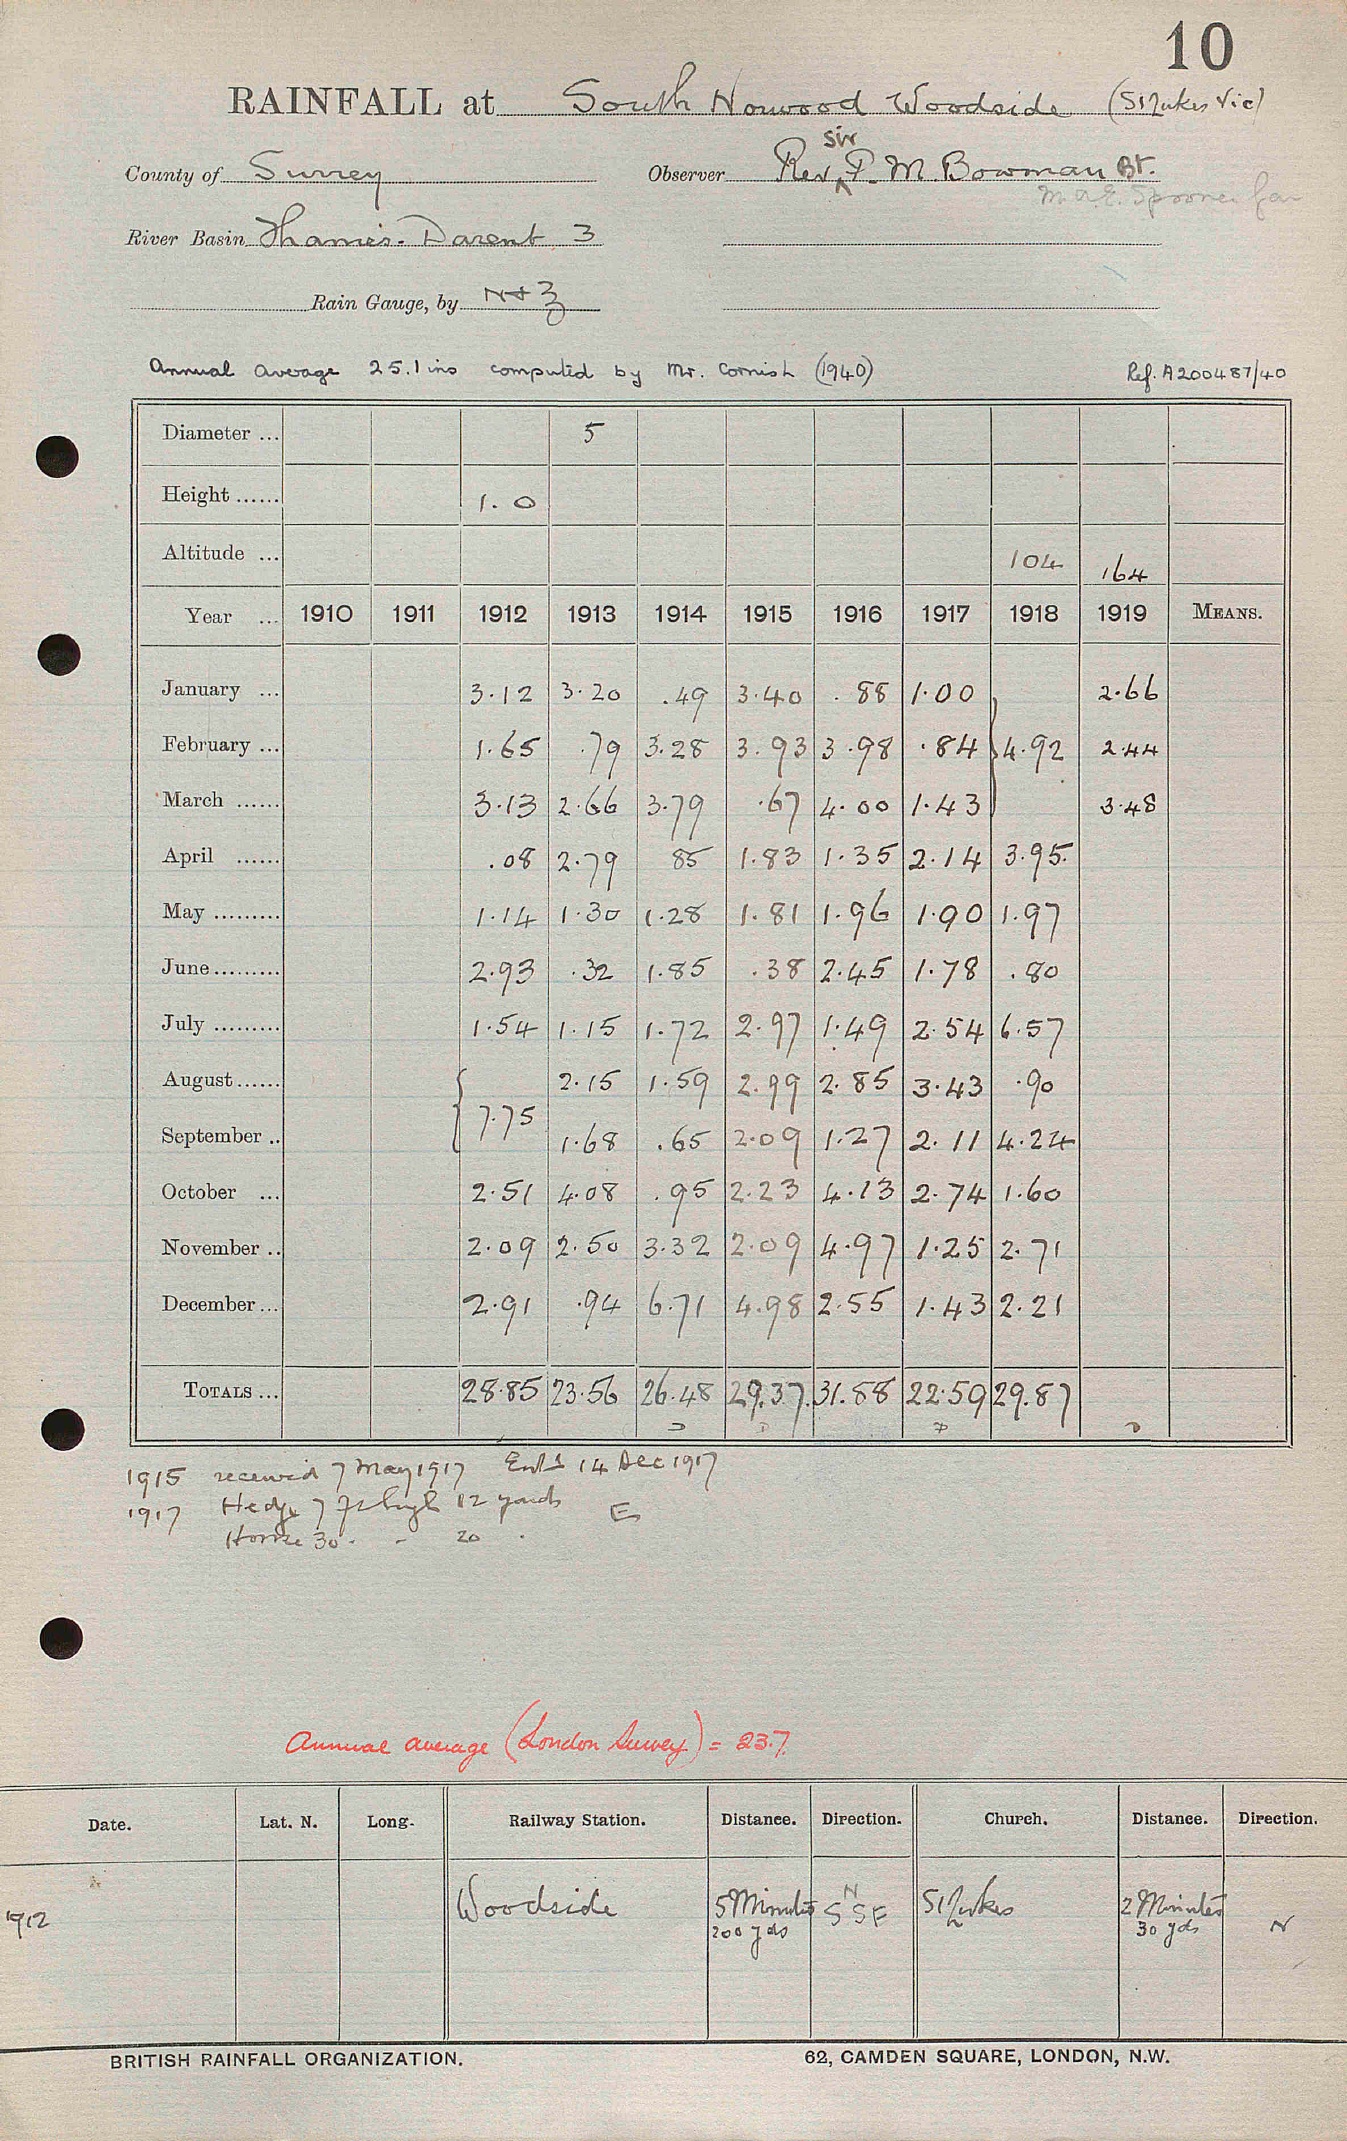 10
RAINFALL at South Norwood Woodside (St Lukes Vic)
Sir
County of Surrey Observer Rev ^ P. M. Bowman Bt.
River Basin Thames. Darent 3
Rain Gauge, by N & Z
Annual average 25.1 ins computed by Mr. Cornish (1940) Ref. A200487/40
Diameter ... 5
Height ...... 1.0
Altitude ... 104 164
Year ... 1910 1911 1912 1913 1914 1915 1916 1917 1918 1919 MEANS.
January ... 3.12 3.20 .49 3.40 .88 1.00 2.66
February ... 1.65 .79 3.28 3.93 3.98 .84 } 4.92 2.44
March ...... 3.13 2.66 3.79 .67 4.00 1.43 3.48
April ...... .08 2.79 85 1.83 1.35 2.14 3.95
May ......... 1.14 1.30 1.28 1.81 1.96 1.90 1.97
June......... 2.93 .32 1.85 .38 2.45 1.78 .80
July ......... 1.54 1.15 1.72 2.97 1.49 2.54 6.57
August...... 2.15 1.59 2.99 2.85 3.43 .90
{ 7.75
September .. 1.68 .65 2.09 1.27 2.11 4.24
October ... 2.51 4.08 .95 2.23 4.13 2.74 1.60
November .. 2.09 2.50 3.32 2.09 4.97 1.25 2.71
December ... 2.91 .94 6.71 4.98 2.55 1.43 2.21
TOTALS ... 28.85 23.56 26.48 29.37 31.88 22.59 29.87
1915 received 7 May 1917 Entd 14 Dec 1917
1917 Hedge 7 ft high 12 yards E
House 30 . - 20 .
Annual average (London Survey) = 23.7.
Date. Lat. N. Long. Railway Station. Distance. Direction. Church. Distance. Direction.
1912 Woodside 5 Minutes S N SE St Lukes 2 Minutes N
200 yds 30 yds
BRITISH RAINFALL ORGANIZATION. 62, CAMDEN SQUARE, LONDON, N.W.